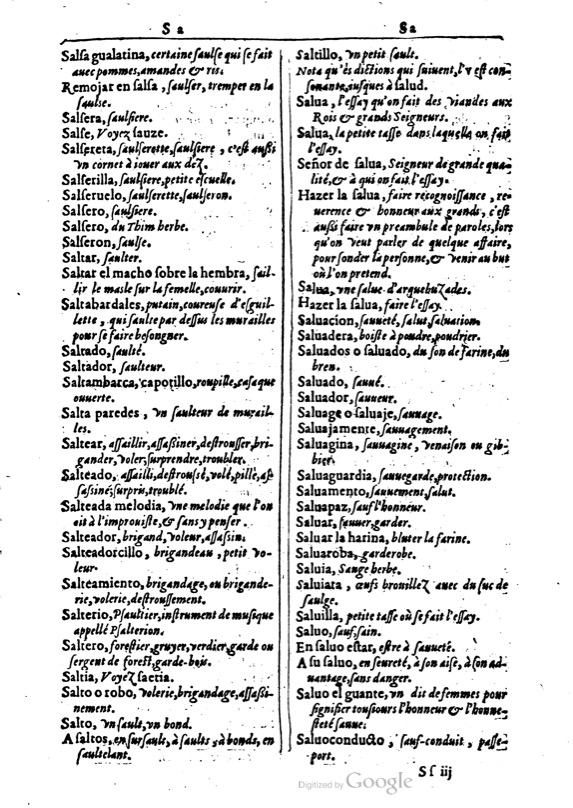 S a
Sa
Salsa gualatina, certaine saulse qui se fait
auec pommes, amandes & ris.
Remojar en salsa, saulser, tremper en la
saulse.
Salsera, saulsiere.
Salse, Voyez sauze.
Salsereta, saulserette, saulsiere, c'est aussi
vn cornet à iouer aux dez.
Salserilla, saulsiere, petite escuelle.
Salseruelo, saulserette, saulseron.
Salsero, saulsiere.
Salsero, du Thim herbe.
Salseron, saulse.
Saltar, saulter.
Saltar el macho sobre la hembra, sail-
lir le masle sur la femelle, couurir.
Saltabardales, putain, coureuse d'esguil-
lette, qui saulte par dessus les murailles
pour se faire besongner.
Saltado, saulté.
Saltador, saulteur.
Saltambarca, capotillo, roupille, casaque
ouuerte.
Salta paredes, vn saulteur de murail-
les.
Saltear, assaillir, assassiner, destrousser, bri-
gander, voler, surprendre, troubler.
Salteado, assailli, destroussé, volé, pillé, as-
sassiné, surpris, troublé.
Salteada melodia, vne melodie que l'on
oit à l'improuiste, & sans y penser.
Salteador, brigand, voleur, assassin.
Salteadorcillo, brigandeau, petit vo-
leur.
Salteamiento, brigandage, ou brigande-
rie, volerie, destroussement.
Salterio, Psaultier, instrument de musique
appellé Psalterion.
Saltero, forestier, gruyer, verdier, garde ou
sergent de forest, garde-bois.
Saltia, Voyez saetia.
Salto o robo, volerie, brigandage, assassi-
nement.
Salto, vn sault, vn bond.
A saltos, en sursault, à saults, à bonds, en
saultelant.
Saltillo, vn petit sault.
Nota qu'és dictions qui suiuent, l'v est con-
sonante, iusques à salud.
Salua, l'essay qu'on fait des viandes aux
Rois & grands Seigneurs.
Salua, la petite tasse dans laquelle on fait
l'essay.
Señor de salua, Seigneur de grande qua-
lité, & à qui on fait l'essay.
Hazer la salua, faire recognoissance, re-
uerence & honneur aux grands, c'est
aussi faire vn preambule de paroles, lors
qu'on veut parler de quelque affaire,
pour sonder la personne, & venir au but
où l'on pretend.
Salua, vne salue d'arquebuzades.
Hazer la salua, faire l'essay.
Saluacion, sauueté, salut, saluation.
Saluadera, boiste à poudre, poudrier.
Saluados o saluado, du son de farine, du
bren.
Saluado, sauué.
Saluador, sauueur.
Saluage o saluaje, sauuage.
Saluajamente, sauuagement.
Saluagina, sauuagine, venaison ou gib-
bier.
Saluaguardia, sauuegarde, protection.
Saluamento, sauuement, salut.
Saluapaz, sauf l'honneur.
Saluar, sauuer, garder.
Saluar la harina, bluter la farine.
Saluaroba, garderobe.
Saluia, Sauge herbe.
Saluiata, œufs brouillez auec du suc de
saulge.
Saluilla, petite tasse où se fait l'essay.
Saluo, sauf, sain.
En saluo estar, estre à sauueté.
A su saluo, en seureté, à son aise, à son ad-
uantage, sans danger.
Saluo el guante, vn dit de femmes pour
signifier tousiours l'honneur & l'honne-
steté sauue.
Saluoconducto, sauf-conduit, passe-
port.
Sſ iij
Digitized by Google